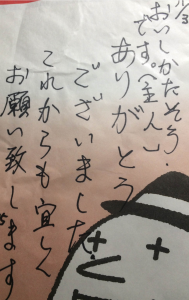 おいしかたそう.
です。(全人)
ありがとう
ございました
これからも宜しく
お願い致します